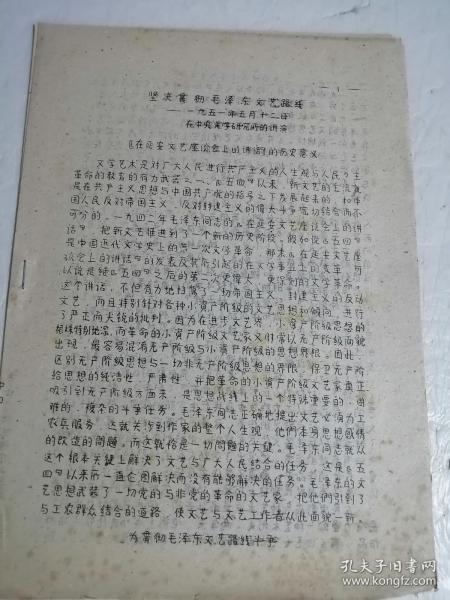 坚决贯彻毛泽东文艺路线
——一九五一年五月十二日
在中央文学研究所的讲演
《在延安文艺座谈会上的讲话》的历史意义
文学艺术是对广大人民进行共产主义的人生观与人民民主
革命的教育的有力武器之一。"五四"以来,新文艺的主流真
是在共产主义思想与中国共产党的指导之下发展起来的,和中
国人民反对帝国主义、及对封建主义的伟大斗争密切结合而不
可分的。一九四二年毛泽东同志的《在延安文艺座谈会上的讲
话》,把新文艺推进到了一个新的历史阶段。假如说"五四"
是中国近代文学史上的第一次文学革命,那末《在延安文艺座
谈会上的讲话》的发表及其所引起的在文学事业上的变革,可
以说是继"五四"之后的第二次更伟大、更深刻的文学革命。
这个讲话,不但有力地扫荡了一切帝国主义、封建主义的反动
文艺,而且特别针对各种小资产阶级的文艺思想和倾向,进行
了严正而尖锐的批判。因为在进步文艺界,小资产阶级思想的
特别地深,而革命的小资产阶级文艺家又时常以无产阶级面貌
出现,最容易混淆无产阶级与小资产阶级的思想界限。因此,
区别无产阶级思想与一切非无产阶级思想的界限,保卫无产阶
给思想的纯洁性、严肃性,并把革命的小资产阶级文艺家真正
吸引到无产阶级方面来,是思想战线上的一个特殊重要的、艰
难的、复杂的斗争任务。毛泽东同志正确地提出文艺必须为工
农兵服务,这就关涉到作家的整个人生观,他们本身思想感情
的改造的问题,而这就恰是一切问题的关键。毛泽东同志就从
这个根本关键上解决了文艺与广大人民结合的任务,这是"五
四"以来所一直企图解决而没有能够解决的任务。毛泽东的文
艺思想武装了一切党的与非党的革命的文艺家,把他们引到了
与工农群众结合的道路,使文艺与文艺工作者从此面貌一新
为贯彻毛泽东文艺路线斗争
孔夫子旧书网